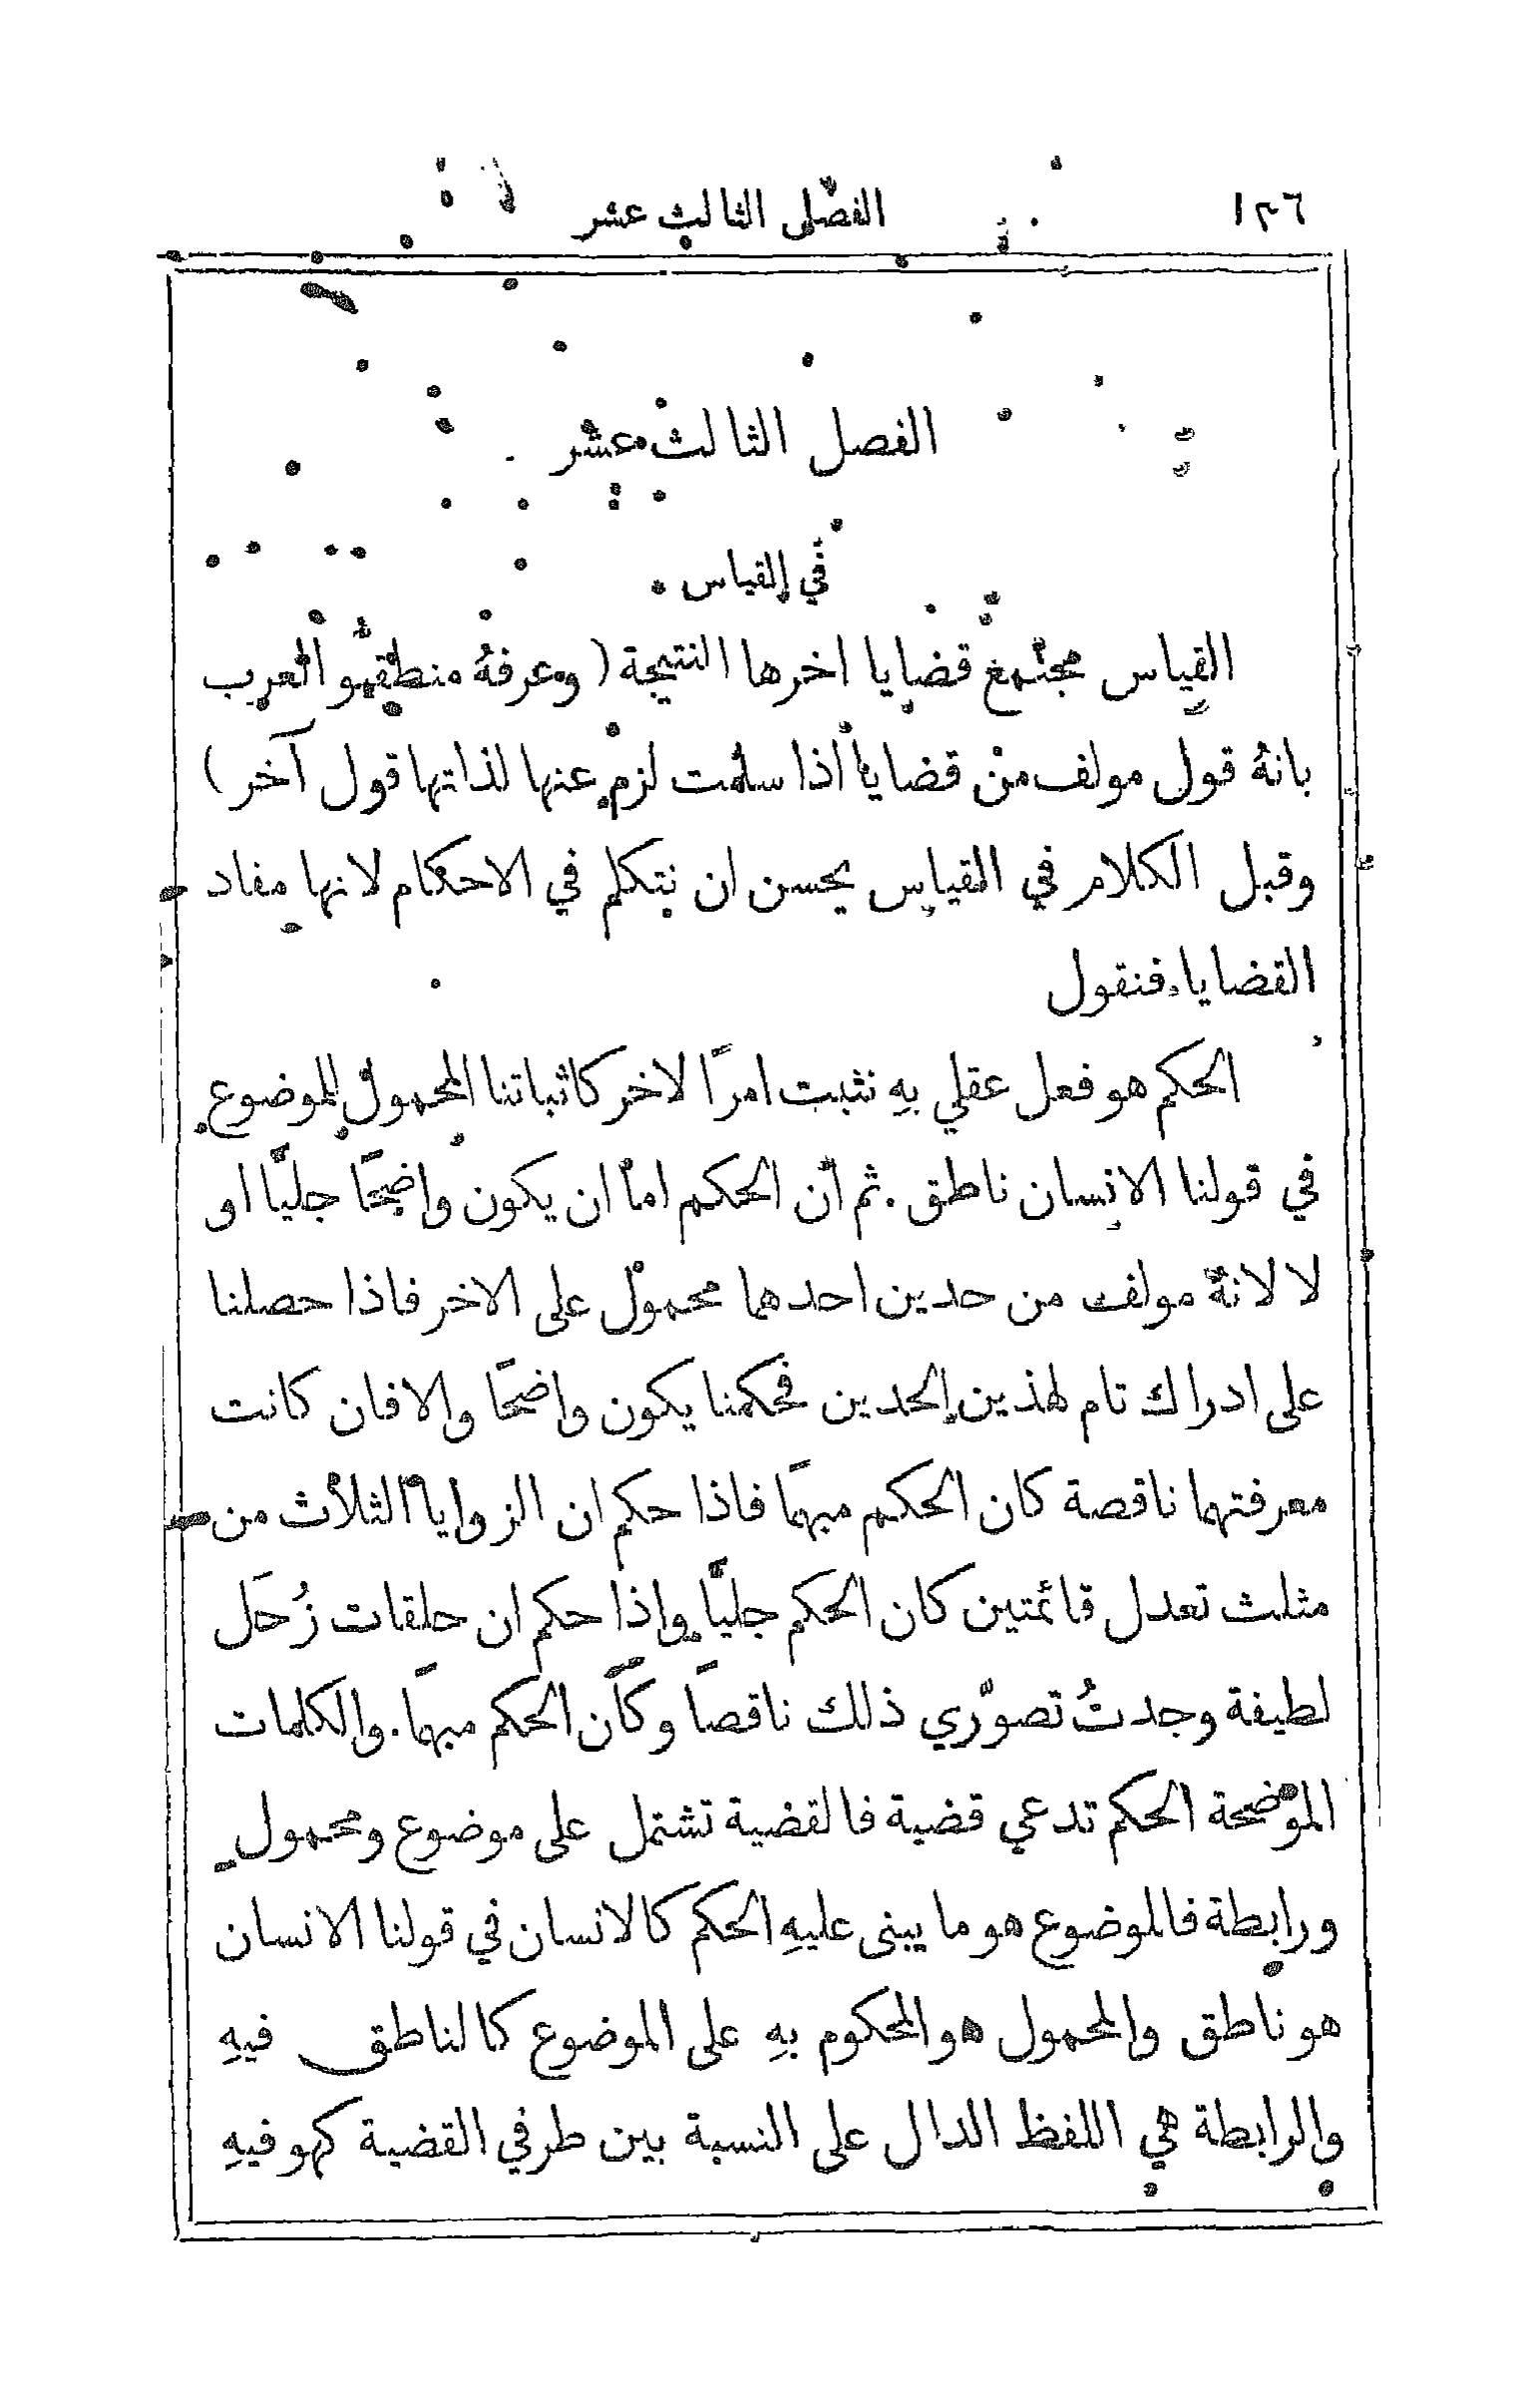 ١٣٦ الفصل الثالث عشر
الفصل الثالث عشر
في القياس
القياس مجتمع قضايا اخرها النتيجة (وعرفهُ منطقيو العرب
بانهُ قول مولف من قضايا اذا سلمت لزم عنها لذاتها قول آخر)
وقبل الكلام في القياس يحسن ان نتكلم في الاحكام لانها مفاد
القضايا فنقول
الحكم هو فعل عقلي بهِ نثبت امرًا لاخر كاثباتنا المحمول للموضوع
في قولنا الانسان ناطق. ثم ان الحكم اما ان يكون واضحًا جليًّا او
لا لانهُ مولف من حدين احدهما محمول على الاخر فاذا حصلنا
على ادراك تام لهذين الحدين فحكمنا يكون واضحًا والا فان كانت
معرفتهما ناقصة كان الحكم مبهمًا فاذا حكم ان الزوايا الثلاث من
مثلث تعدل قائمتين كان الحكم جليًّا واذا حكم ان حلقات زُحَل
لطيفة وجدتُ تصوّري ذلك ناقصًا وكان الحكم مبهمًا. والكلمات
الموضحة الحكم تدعي قضية فالقضية تشتمل على موضوع ومحمول
ورابطة فالموضوع هو ما يبنى عليهِ الحكم كالانسان في قولنا الانسان
هو ناطق والمحمول هو المحكوم بهِ على الموضوع كالناطق فيهِ
والرابطة هي اللفظ الدال على النسبة بين طرفي القضية كهو فيهِ